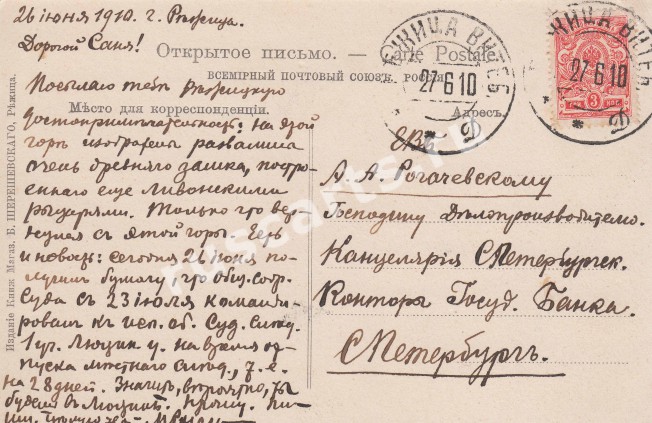 26 июня 1910 г. Режица.
Дорогой Саня!
Открытое письмо. — Carte Postale.
ВСЕМІРНЫЙ ПОЧТОВЫЙ СОЮЗЪ. РОССІЯ.
Мѣсто для корреспонденціи.
Адресъ.
Посылаю тебѣ Режицкую
достопримѣчательность: на этой
горѣ изображена развалина
очень древняго замка, построе-
ннаго еще Ливонскими
рыцарями. Только что вер-
нулся съ этой горы. Есть
и новость: сегодня 26 июня по-
лучилъ бумагу, что общ. собр.
Суда съ 23 июля командн-
ровалъ къ исп. об. Суд. Слѣд.
1 уч. Люцин у. на время от-
пуска мѣстнаго слѣд., т. е.
на 28 дней. Значитъ, вѣроятно,
будешь въ
ЕВБ
А. А. Рогачевскому
Господину Дѣлопроизводителю.
Канцелярія СПетербургск.
Конторы Госуд. Банка.
СПетербургъ.
РѢЖИЦА ВИТЕБ.
27 6 10
ЖИЦА ВИТЕБ.
27 6 10
3 КОП
Изданіе Книж. Магаз. Б. ШЕРЕШЕВСКАГО, Рѣжица.
ruscarts.ru